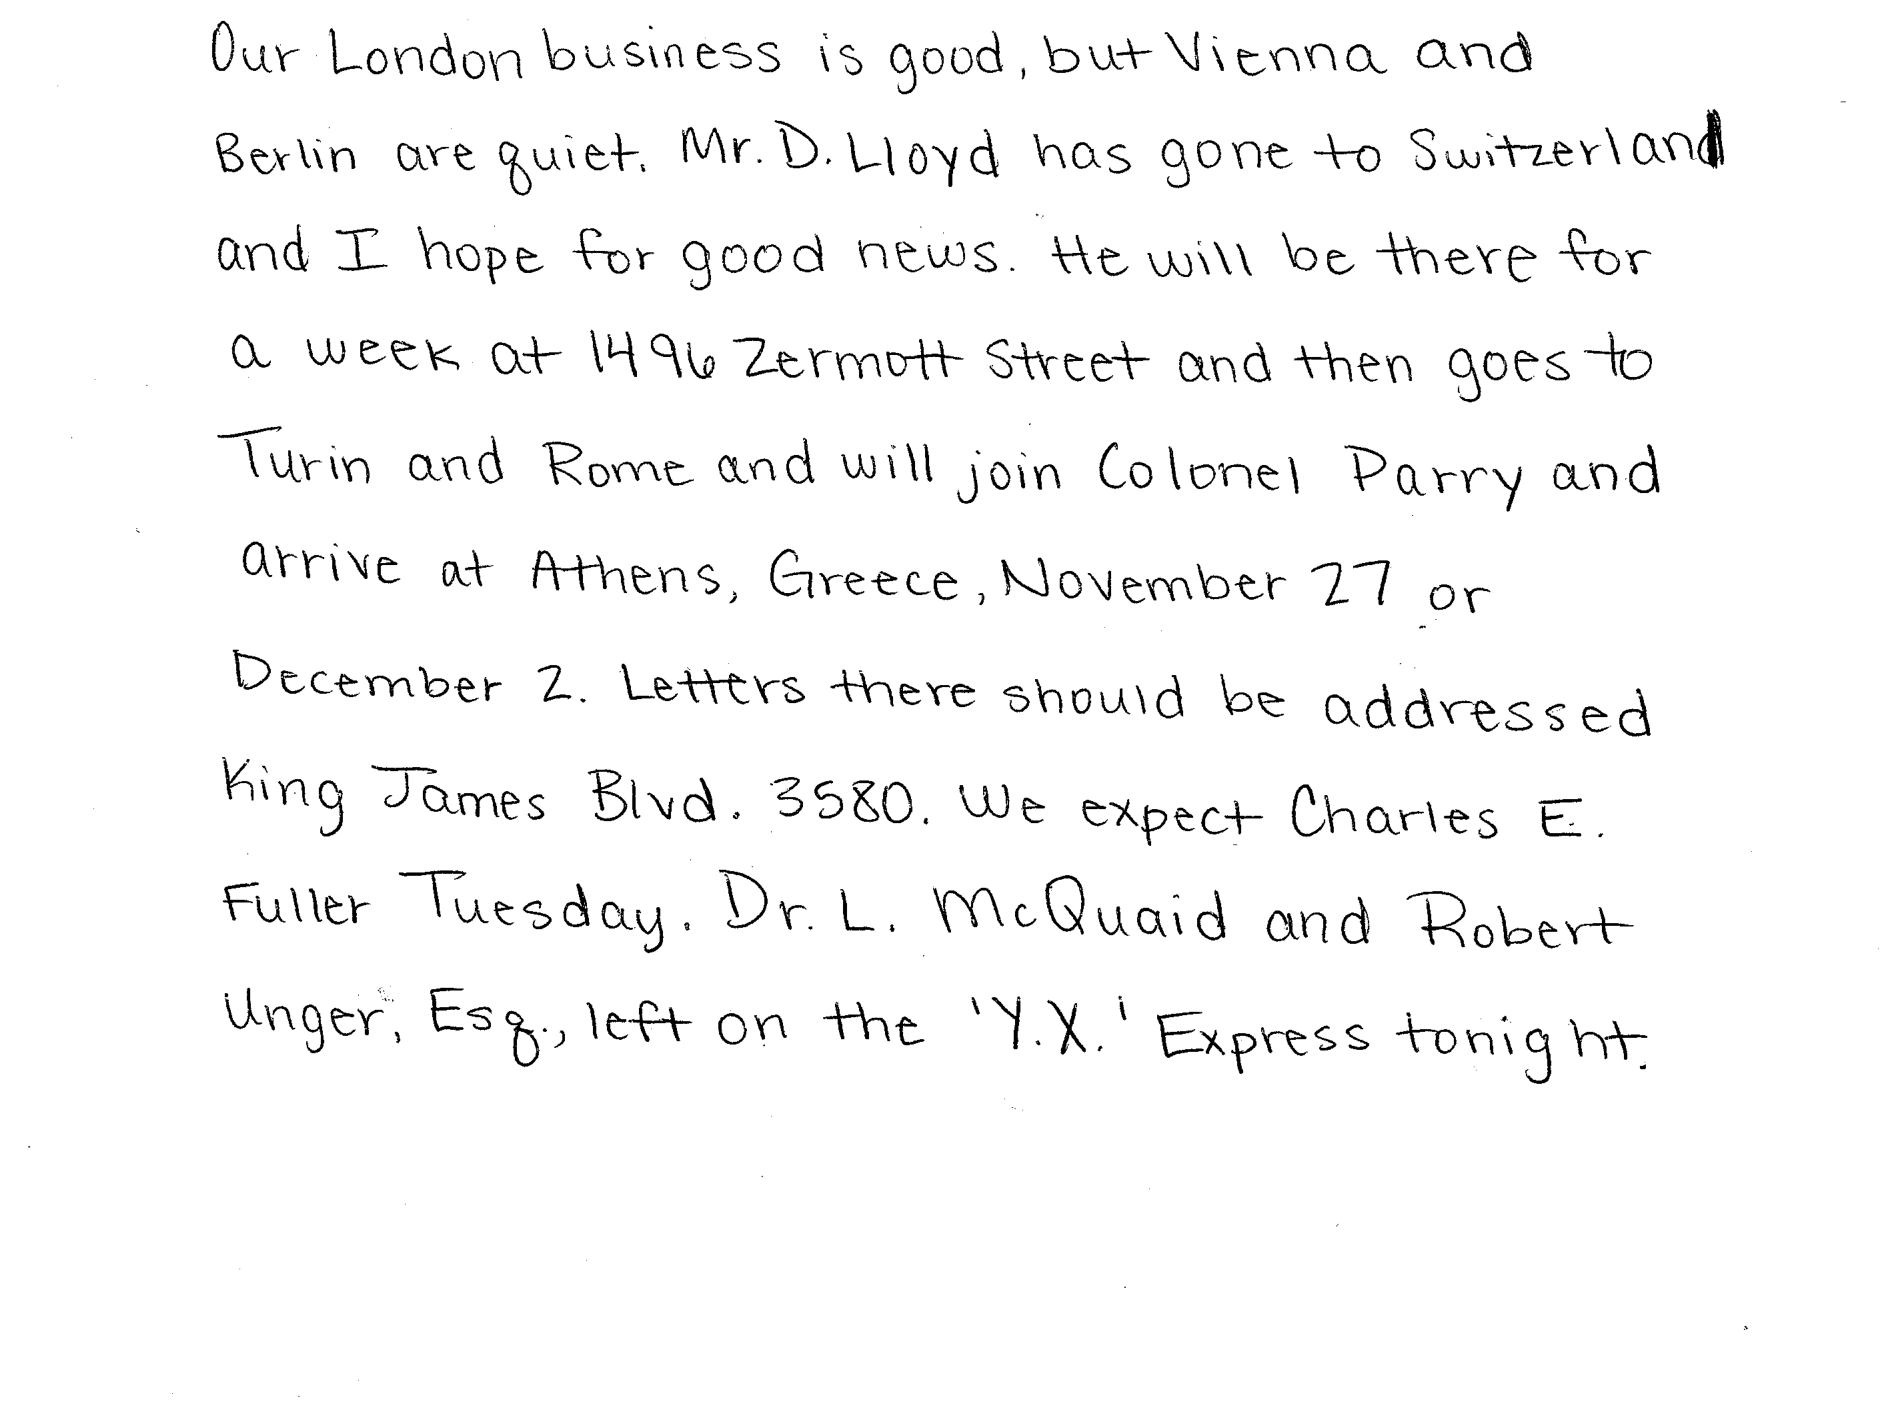 Our London business is good, but Vienna and
Berlin are quiet. Mr. D. Lloyd has gone to Switzerland
and I hope for good news. He will be there for
a week at 1496 Zermott Street and then goes to
Turin and Rome and will join Colonel Parry and
arrive at Athens, Greece, November 27 or
December 2. Letters there should be addressed
King James Blvd. 3580. We expect Charles E.
Fuller Tuesday. Dr. L. McQuaid and Robert
Unger, Esq., left on the 'Y.X.' Express tonight.